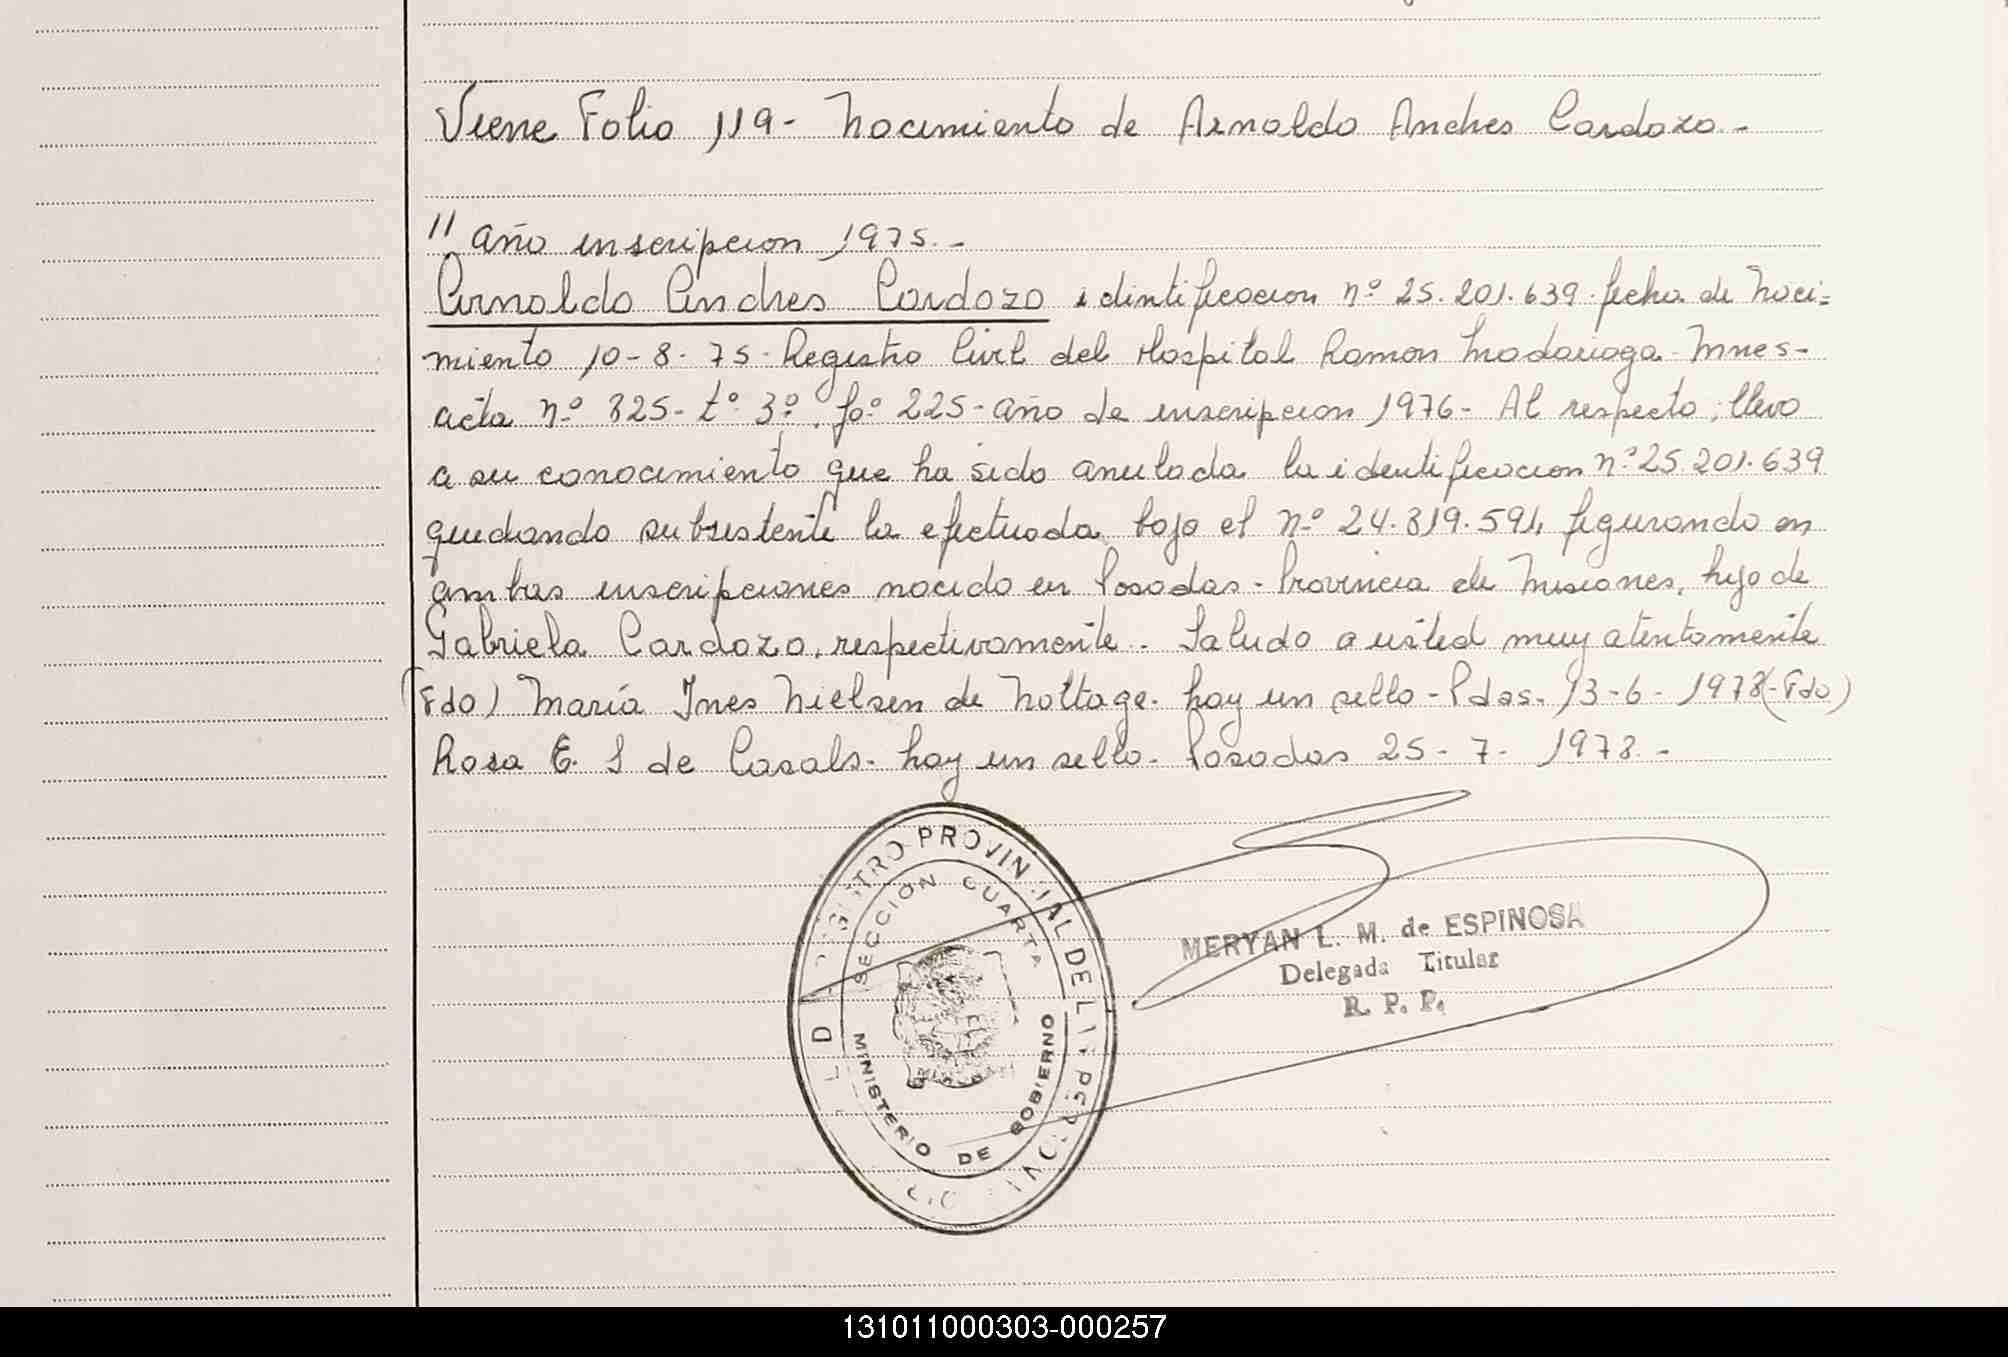 Viene Folio 119- Nacimiento de Arnoldo Andres Cardozo.-
" año inscripcion 1975.-
Arnoldo Andres Cardozo identificacion nº 25.201.639. fecha de naci=
miento 10-8-75- Registro Civil del Hospital Ramon Madariaga- Mnes-
acta nº 825- tº 3º. fº 225- año de inscripcion 1976- Al respecto, llevo
a su conocimiento que ha sido anulada la identificacion nº 25.201.639
quedando subsistente la efectuada bajo el nº 24.819.591, figurando en
ambas inscripciones nacido en Posadas- Provincia de Misiones, hijo de
Gabriela Cardozo, respectivamente.- Saludo a usted muy atentamente
(Fdo) María Ines Nielsen de Nottage- hay un sello- Pdas. 13-6-1978 (-Fdo)
Rosa E. S de Casals- hay un sello- Posadas 25-7-1978.-
PROVINCIAL DE LAS PERSONAS
SECCION CUARTA
MINISTERIO DE GOBIERNO
MERYAN L. M. de ESPINOSA
Delegada Titular
R. P. P.
131011000303-000257